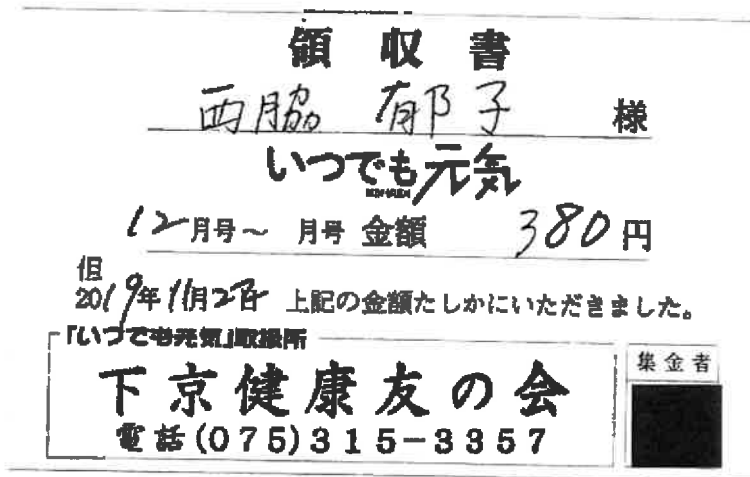 領収書
西脇 郁子 様
いつでも元気
12月号～ 月号 金額 380円
但
2019年11月27日 上記の金額たしかにいただきました。
「いつでも元気」取扱所
下京健康友の会
電話(075)315-3357
集金者